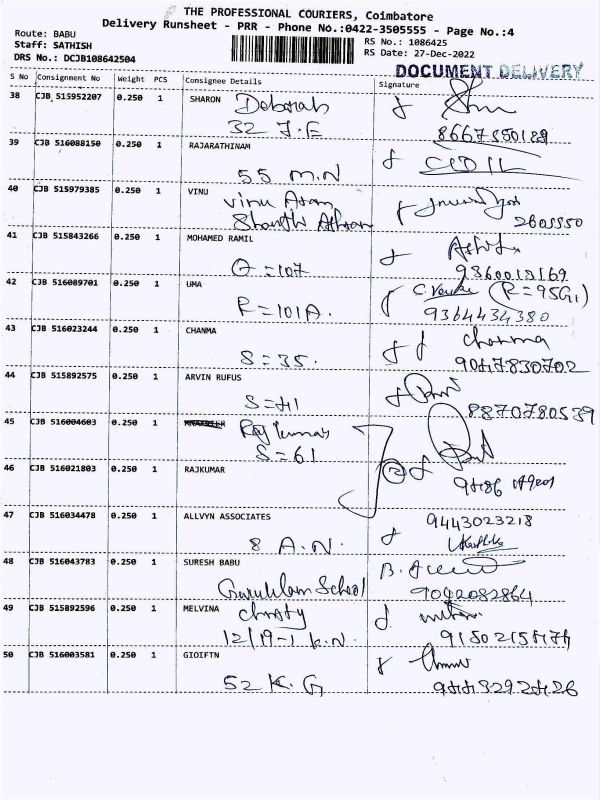 THE PROFESSIONAL COURIERS, Coimbatore
Delivery Runsheet - PRR - Phone No.:0422-3505555 - Page No.:4
Route: BABU
Staff: SATHISH
DRS No.: DCJB108642504
RS No.: 1086425
RS Date: 27-Dec-2022
DOCUMENT DELIVERY
S No Consignment No Weight PCS Consignee Details Signature
38 CJB 515952207 0.250 1 SHARON Deborah
32 J.E 8667350189
39 CJB 516088150 0.250 1 RAJARATHINAM
55 M.N
40 CJB 515979385 0.250 1 VINU
Vinu Aram
Shanthi 2605550
41 CJB 515843266 0.250 1 MOHAMED RAMIL
Q = 107 9860018169
42 CJB 516089701 0.250 1 UMA (R = 95G1)
R = 101A. 9364434380
43 CJB 516023244 0.250 1 CHANMA Chanma
S = 35. 9047830702
44 CJB 515892575 0.250 1 ARVIN RUFUS
S = 41 8870780539
45 CJB 516004603 0.250 1 Raj Kumar
S = 61
46 CJB 516021803 0.250 1 RAJKUMAR 2
9486
47 CJB 516034478 0.250 1 ALLVYN ASSOCIATES 9443023218
8 A.N.
48 CJB 516043783 0.250 1 SURESH BABU B.
Gurukulam School 9042082864
49 CJB 515892596 0.250 1 MELVINA Christy
12/19-1 K.N. 9150215474
50 CJB 516003581 0.250 1 GIOIFTN
52 K.G 9443292426